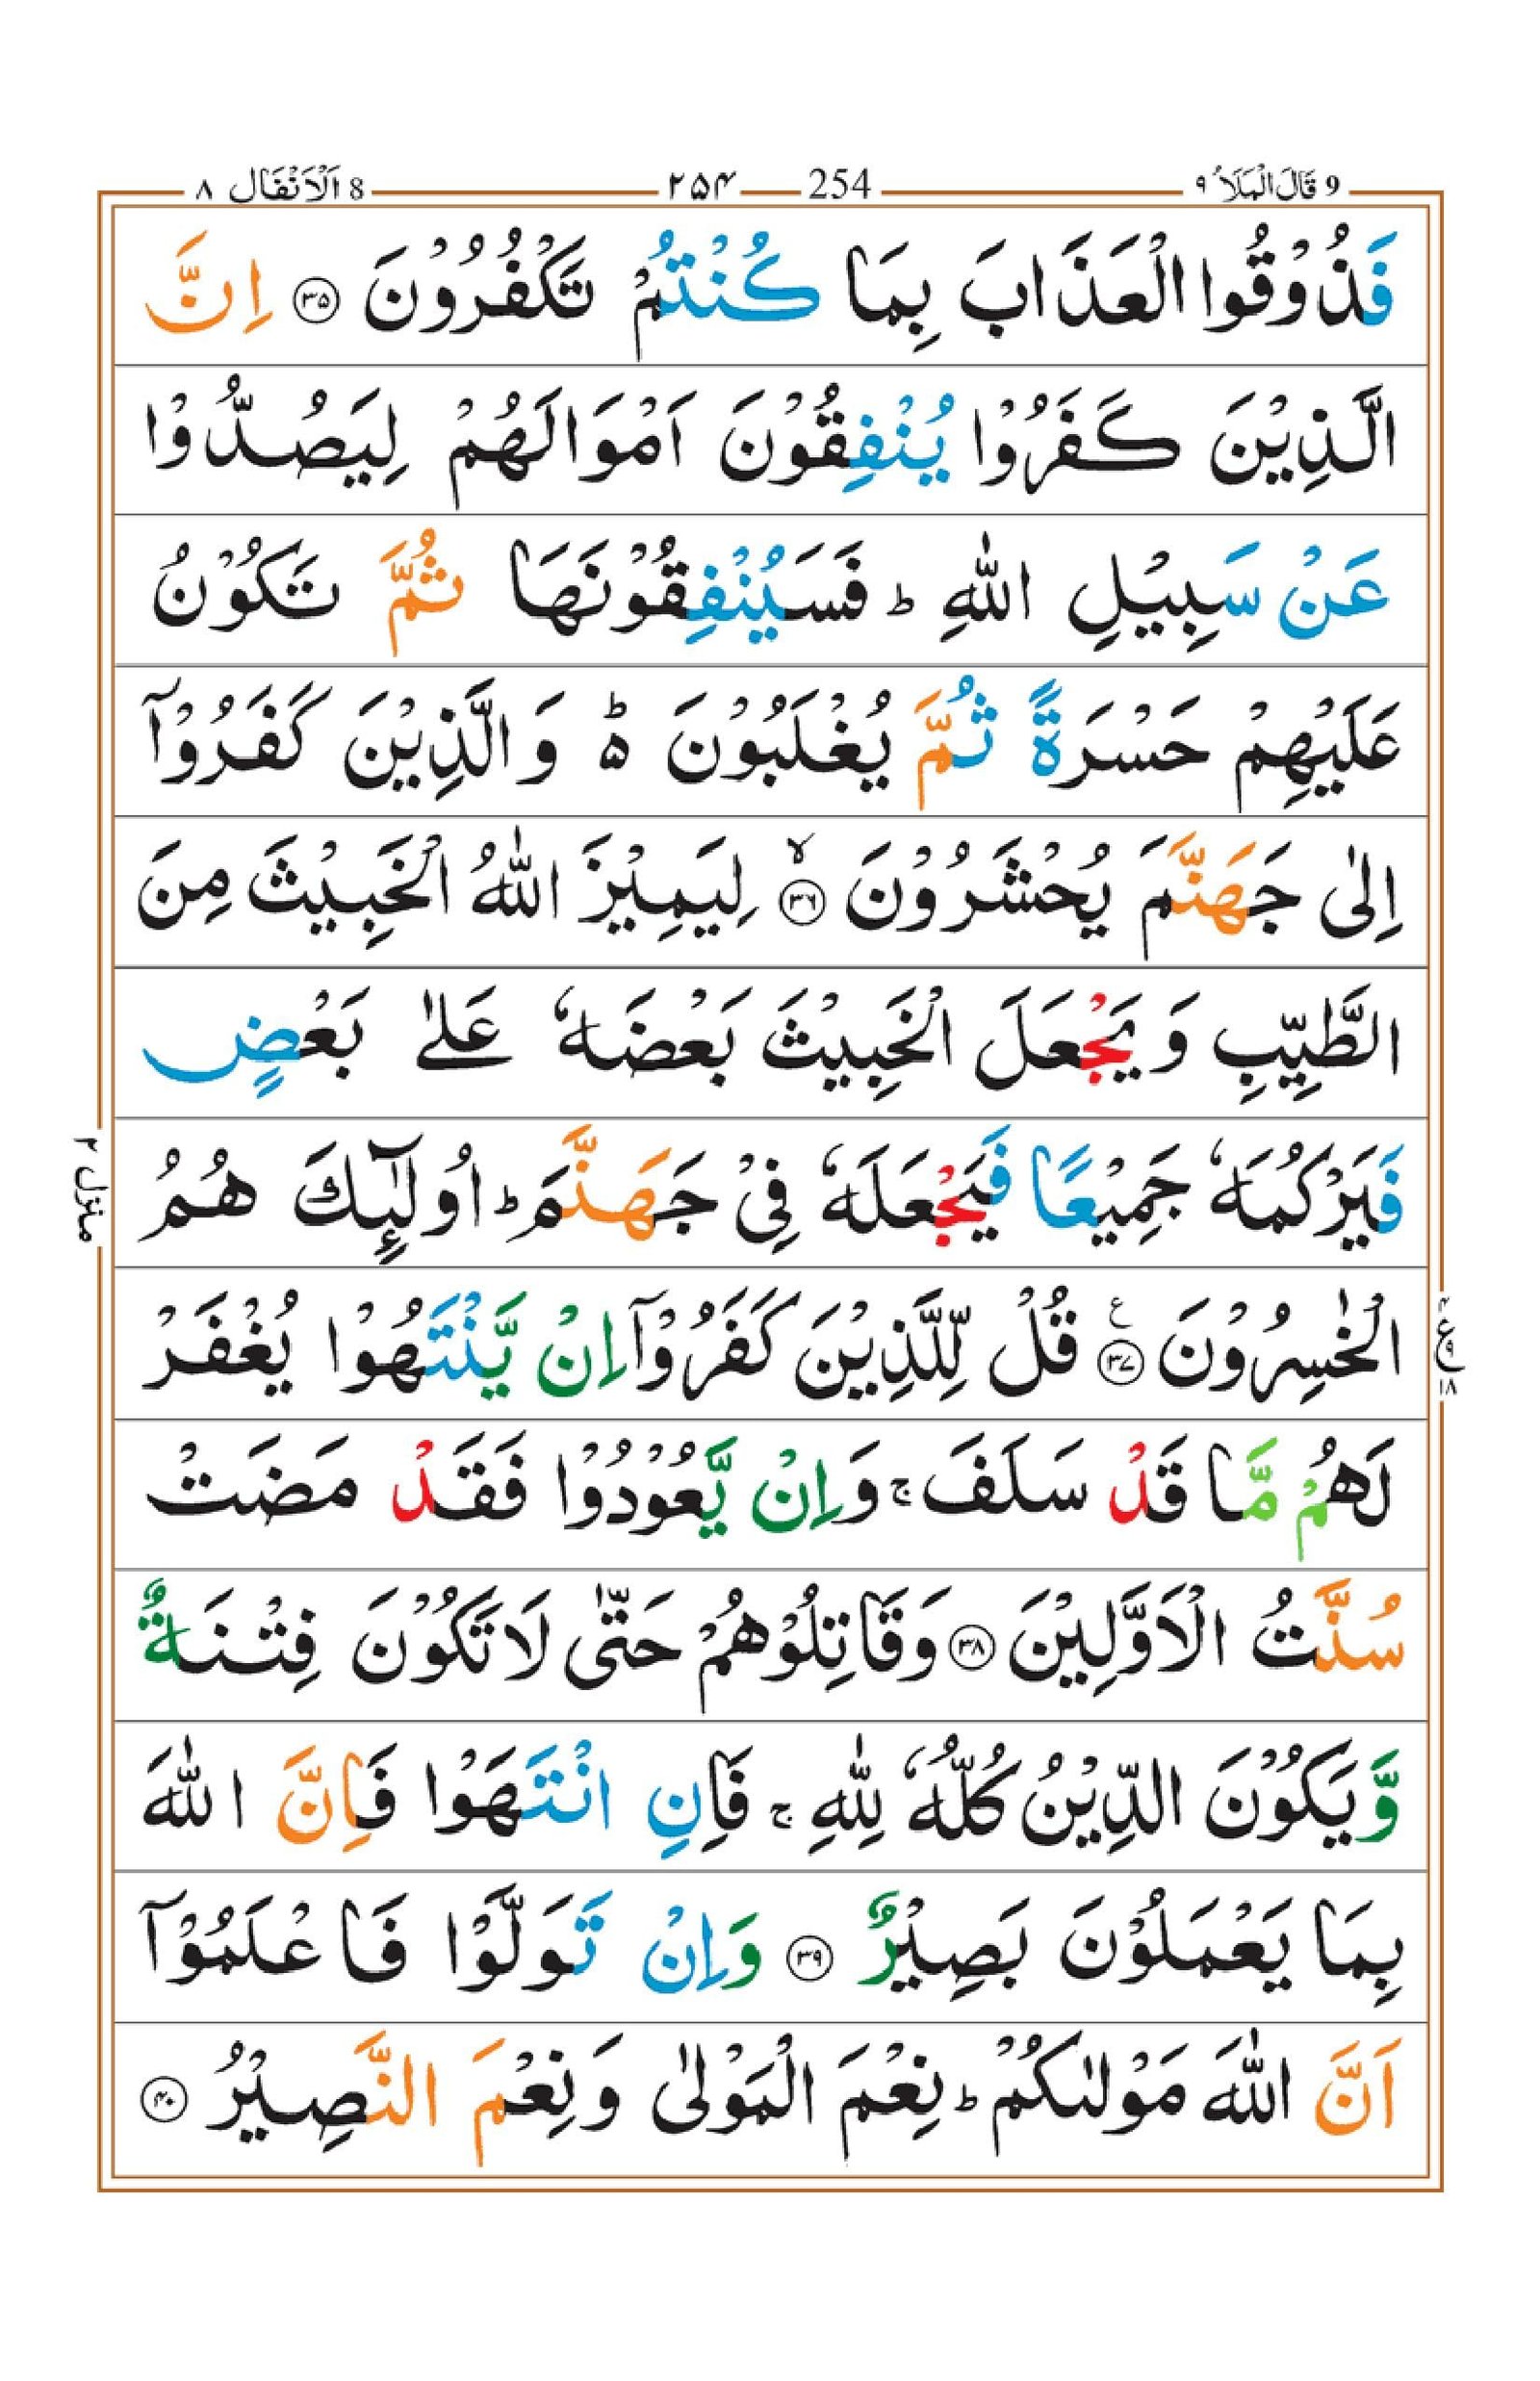 9 قَالَ الْمَلَاُ ٩ 254 ٢٥٤ 8 اَلْاَنْفَال ٨
فَذُوْقُوا الْعَذَابَ بِمَا كُنْتُمْ تَكْفُرُوْنَ ۝٣٥ اِنَّ
الَّذِيْنَ كَفَرُوْا يُنْفِقُوْنَ اَمْوَالَهُمْ لِيَصُدُّوْا
عَنْ سَبِيْلِ اللّٰهِ ؕ فَسَيُنْفِقُوْنَهَا ثُمَّ تَكُوْنُ
عَلَيْهِمْ حَسْرَةً ثُمَّ يُغْلَبُوْنَ ۬ؕ وَالَّذِيْنَ كَفَرُوْۤا
اِلٰى جَهَنَّمَ يُحْشَرُوْنَ ۝٣٦ۙ لِيَمِيْزَ اللّٰهُ الْخَبِيْثَ مِنَ
الطَّيِّبِ وَيَجْعَلَ الْخَبِيْثَ بَعْضَهٗ عَلٰى بَعْضٍ
فَيَرْكُمَهٗ جَمِيْعًا فَيَجْعَلَهٗ فِيْ جَهَنَّمَ ؕ اُولٰٓئِكَ هُمُ
الْخٰسِرُوْنَ ۝٣٧ع قُلْ لِّلَّذِيْنَ كَفَرُوْۤا اِنْ يَّنْتَهُوْا يُغْفَرْ
لَهُمْ مَّا قَدْ سَلَفَ ۚ وَاِنْ يَّعُوْدُوْا فَقَدْ مَضَتْ
سُنَّتُ الْاَوَّلِيْنَ ۝٣٨ وَقَاتِلُوْهُمْ حَتّٰى لَا تَكُوْنَ فِتْنَةٌ
وَّيَكُوْنَ الدِّيْنُ كُلُّهٗ لِلّٰهِ ۚ فَاِنِ انْتَهَوْا فَاِنَّ اللّٰهَ
بِمَا يَعْمَلُوْنَ بَصِيْرٌ ۝٣٩ وَاِنْ تَوَلَّوْا فَاعْلَمُوْۤا
اَنَّ اللّٰهَ مَوْلٰىكُمْ ؕ نِعْمَ الْمَوْلٰى وَنِعْمَ النَّصِيْرُ ۝٤٠
منزل ٢
٤ ع ٩ ١٨